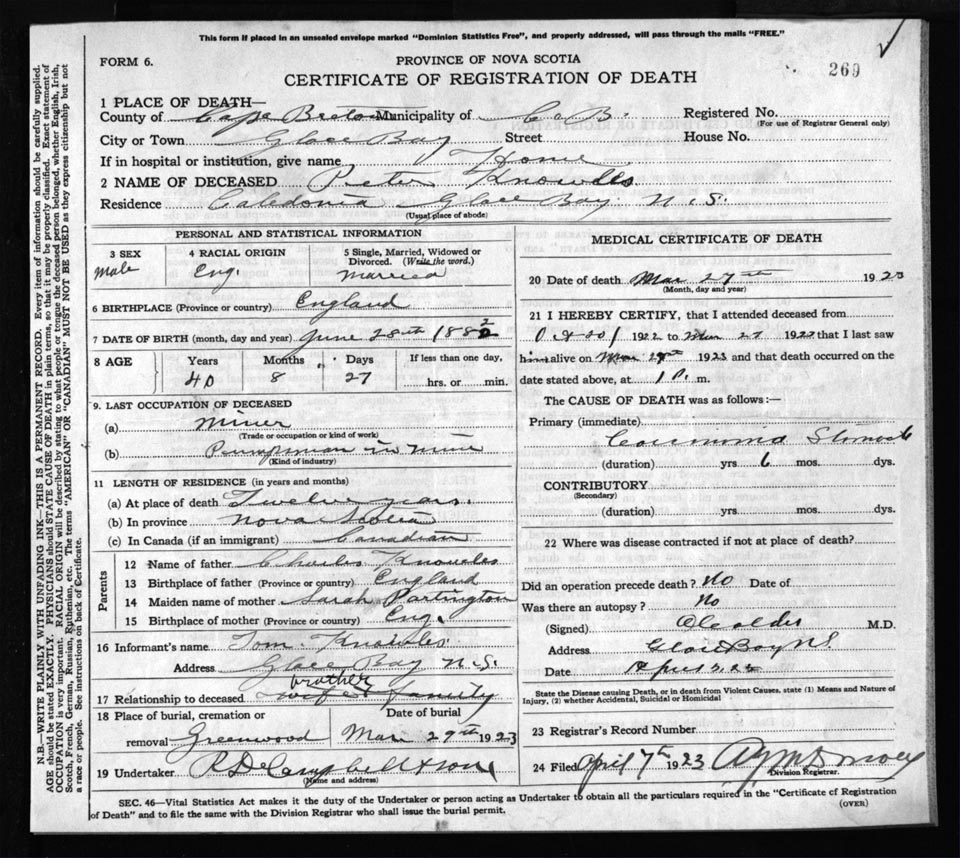 This form if placed in an unsealed envelope marked "Dominion Statistics Free", and properly addressed, will pass through the mails "FREE."
FORM 6.
PROVINCE OF NOVA SCOTIA
CERTIFICATE OF REGISTRATION OF DEATH
269
1 PLACE OF DEATH—
County of Cape Breton Municipality of C. B. Registered No.
(For use of Registrar General only)
City or Town Glace Bay Street House No.
If in hospital or institution, give name Home
2 NAME OF DECEASED Peter Knowles
Residence Caledonia Glace Bay N.S.
(Usual place of abode)
PERSONAL AND STATISTICAL INFORMATION
3 SEX 4 RACIAL ORIGIN 5 Single, Married, Widowed or Divorced. (Write the word.)
Male Eng. Married
6 BIRTHPLACE (Province or country) England
7 DATE OF BIRTH (month, day and year) June 28th 1882
8 AGE Years Months Days If less than one day,
40 8 27 hrs. or min.
9. LAST OCCUPATION OF DECEASED
(a) Miner
(Trade or occupation or kind of work)
(b) Pumpman in Mine
(Kind of industry)
11 LENGTH OF RESIDENCE (in years and months)
(a) At place of death Twelve years.
(b) In province Nova Scotia
(c) In Canada (if an immigrant) Canadian
Parents
12 Name of father Charles Knowles
13 Birthplace of father (Province or country) England
14 Maiden name of mother Sarah Partington
15 Birthplace of mother (Province or country) Eng.
16 Informant's name Tom Knowles
Address Glace Bay N.S.
brother
17 Relationship to deceased wife family
18 Place of burial, cremation or removal Greenwood
Date of burial Mar 29th 1923
19 Undertaker R D Campbell & Sons
(Name and address)
MEDICAL CERTIFICATE OF DEATH
20 Date of death Mar 27th 1923
(Month, day and year)
21 I HEREBY CERTIFY, that I attended deceased from
1922 to Mar 27 1923 that I last saw
him alive on Mar 27th 1923 and that death occurred on the
date stated above, at 10. m.
The CAUSE OF DEATH was as follows:—
Primary (immediate)
Carcinoma Stomach
(duration) yrs 6 mos. dys.
CONTRIBUTORY
(Secondary)
(duration) yrs. mos. dys.
22 Where was disease contracted if not at place of death?
Did an operation precede death? No Date of
Was there an autopsy? No
(Signed) M.D.
Address Glace Bay N.S.
Date April 2. 23
State the Disease causing Death, or in death from Violent Causes, state (1) Means and Nature of Injury, (2) whether Accidental, Suicidal or Homicidal
23 Registrar's Record Number
24 Filed April 7th 1923
Division Registrar.
SEC. 46—Vital Statistics Act makes it the duty of the Undertaker or person acting as Undertaker to obtain all the particulars required in the "Certificate of Registration
of Death" and to file the same with the Division Registrar who shall issue the burial permit.
(OVER)
N.B.—WRITE PLAINLY WITH UNFADING INK—THIS IS A PERMANENT RECORD. Every item of information should be carefully supplied.
AGE should be stated EXACTLY. PHYSICIANS should STATE CAUSE OF DEATH in plain terms, so that it may be properly classified. Exact statement of
OCCUPATION is very important. RACIAL ORIGIN will be described by stating to what people or tongue the deceased person belonged, whether English, Irish,
Scotch, French, German, Russian, Ruthenian, etc. The terms "AMERICAN" OR "CANADIAN" MUST NOT BE USED as they express citizenship but not
a race or people. See instructions on back of Certificate.